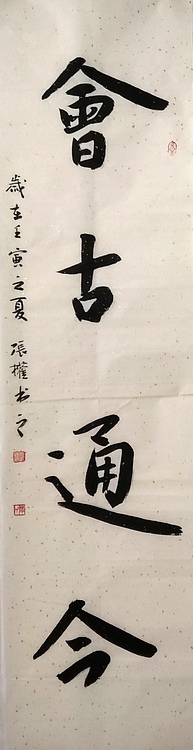 會古通今
歲在壬寅之夏 張權书之